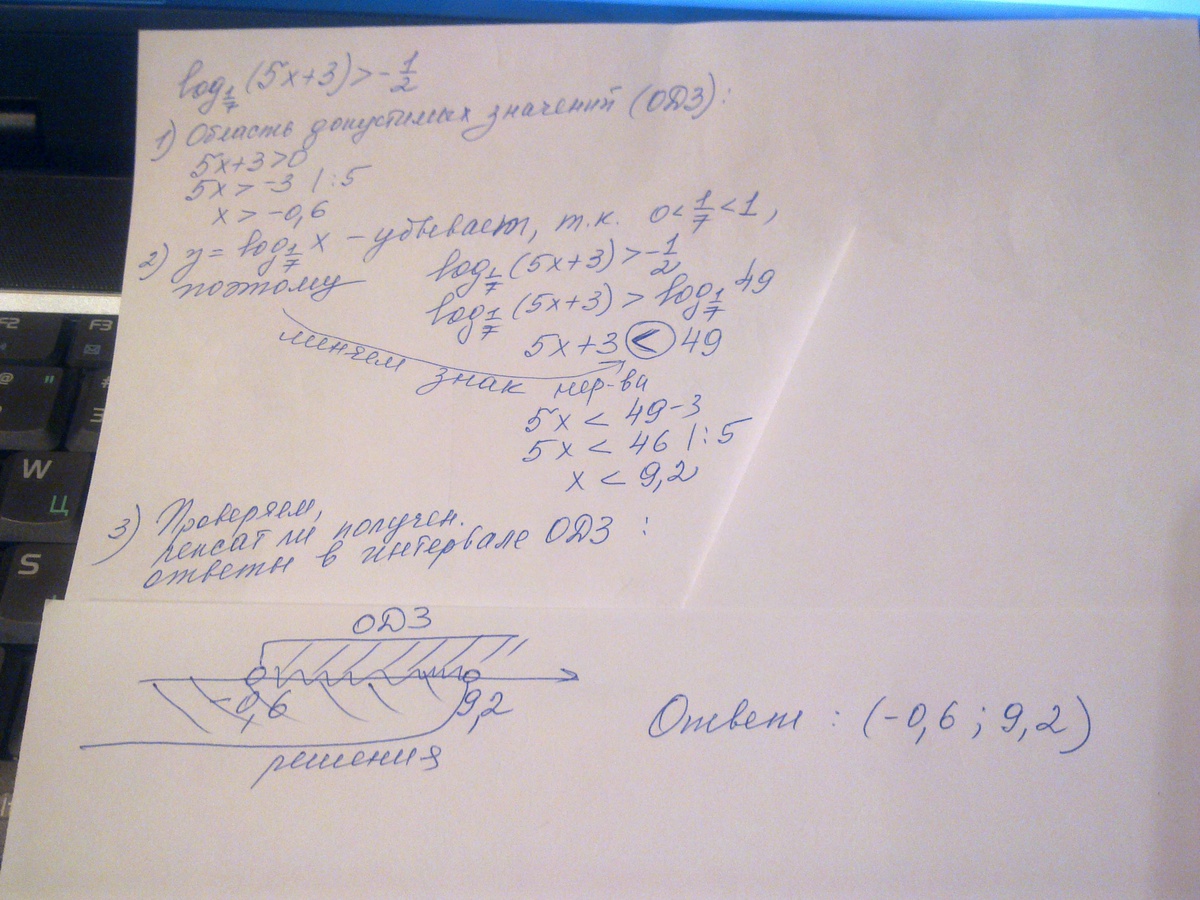 log_{1/7}(5x+3)>-1/2
1) Область допустимых значений (ОДЗ):
5x+3>0
5x>-3 |:5
x>-0,6
2) y=log_{1/7} x – убывает, т.к. 0<1/7<1,
поэтому
log_{1/7}(5x+3)>-1/2
log_{1/7}(5x+3)>log_{1/7} 49
5x+3 < 49
меняем знак нер-ва
5x < 49-3
5x < 46 |:5
x < 9,2
3) Проверяем,
лежат ли получен.
ответы в интервале ОДЗ :
ОДЗ
-0,6
9,2
решения
Ответ : (-0,6 ; 9,2)
F2
F3
@
"
3
W
Ц
S